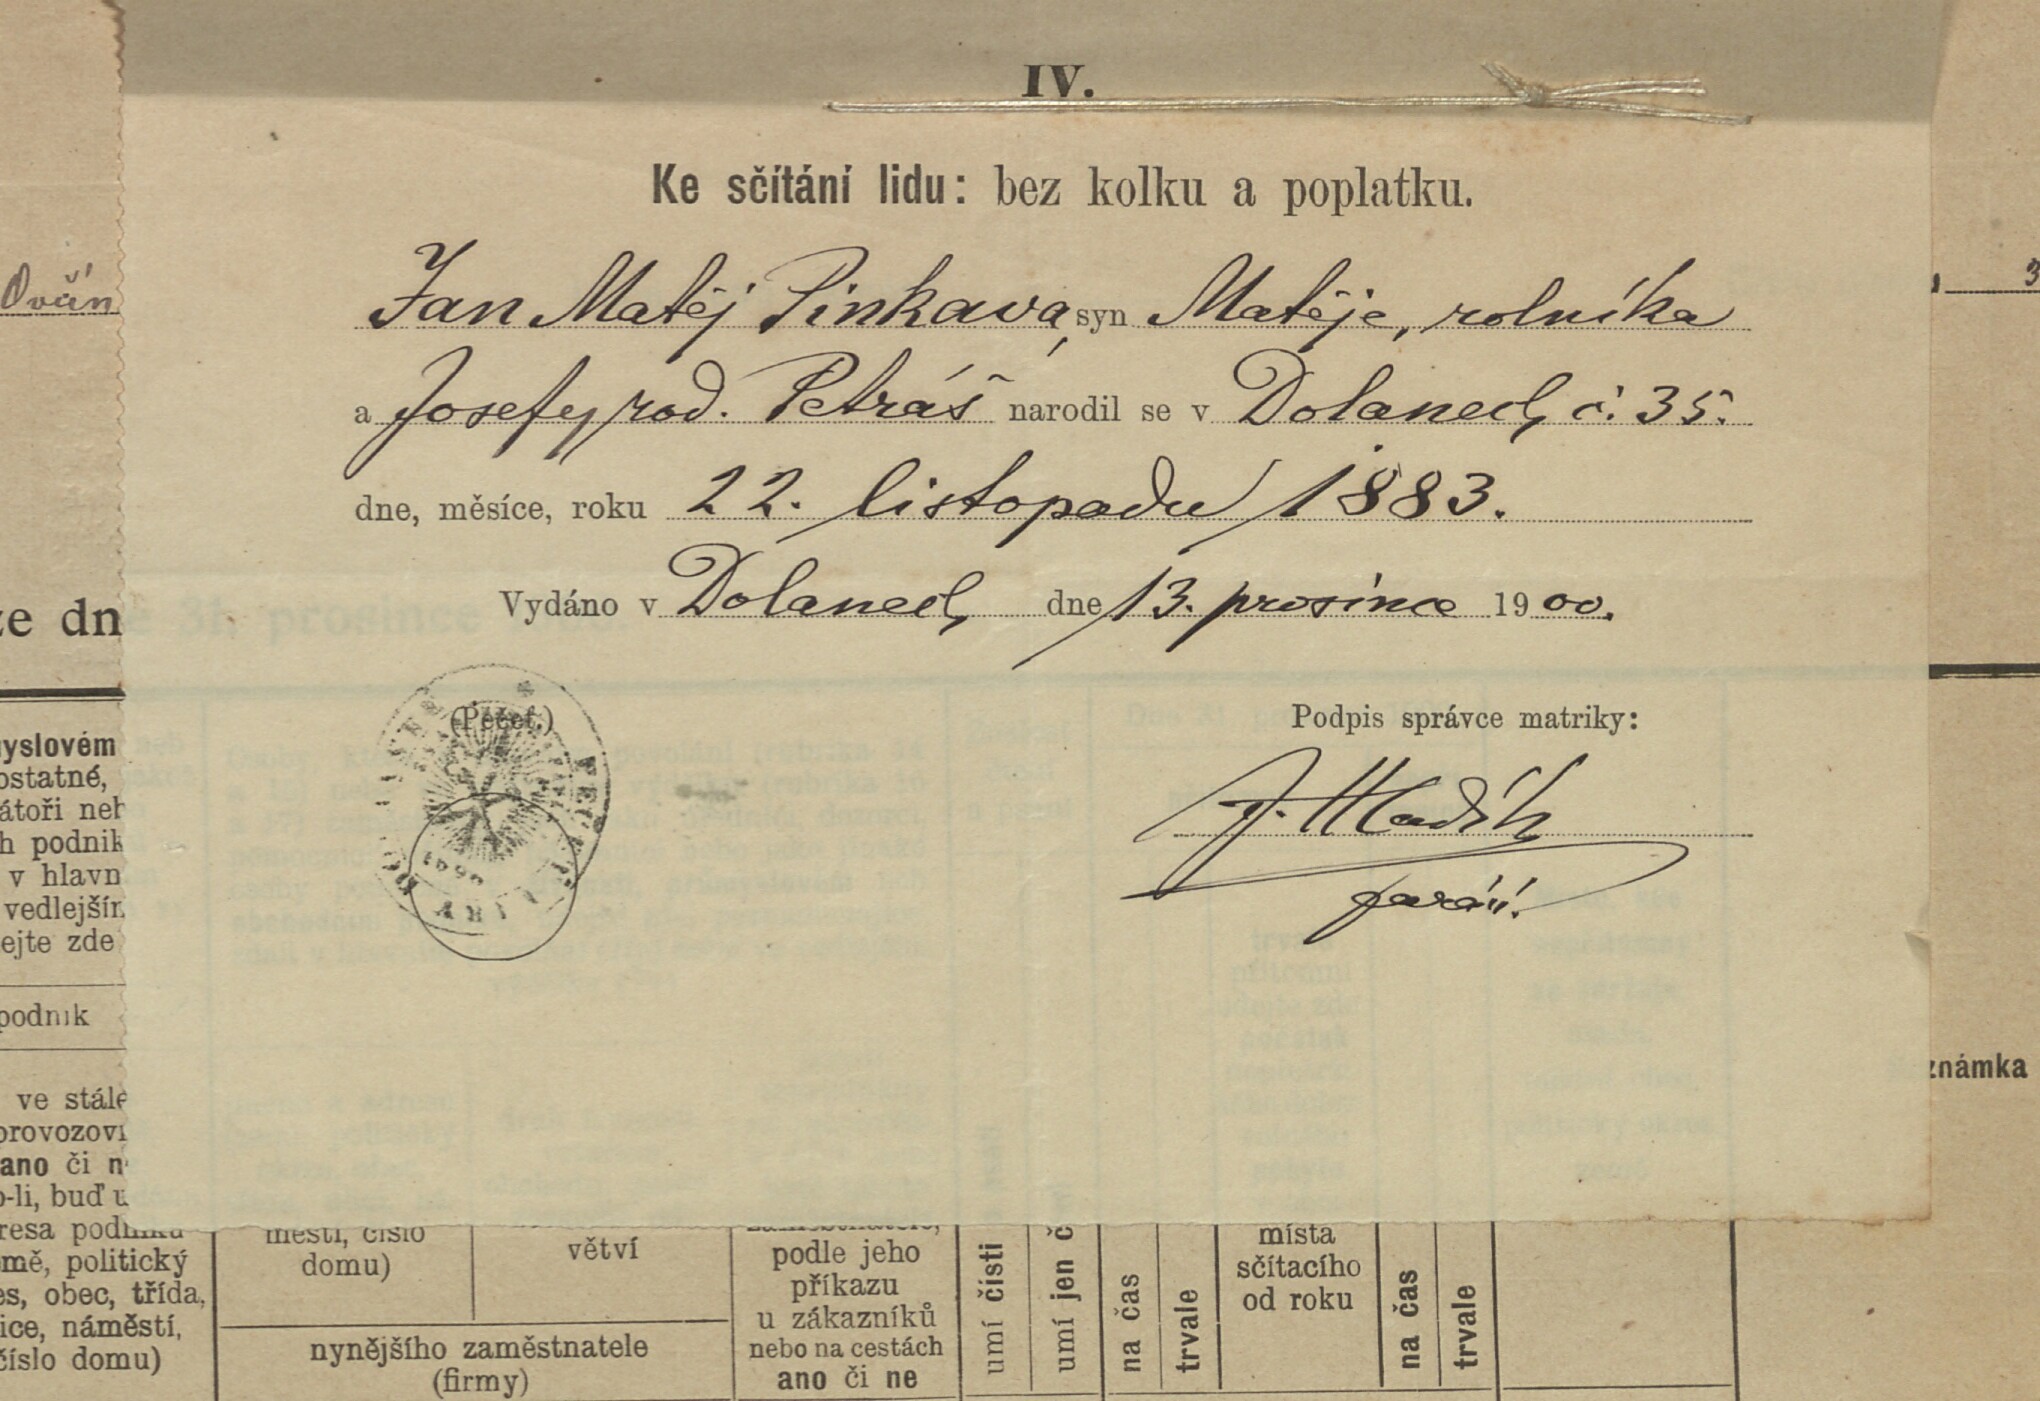 IV.
Ke sčítání lidu: bez kolku a poplatku.
Jan Matěj Pinkava, syn Matěje, rolníka
a Josefy rod. Petráš narodil se v Dolanech č. 35.
dne, měsíce, roku 22. listopadu 1883.
Vydáno v Dolanech dne 13. prosince 1900.
(Pečeť.)
Podpis správce matriky:
J. Hladík
farář.
ze dn
yslovém
ostatné,
átoři neb
h podnik
v hlavn
vedlejšín
ejte zde
podnik
ve stále
provozovi
ano či n
o-li, buď u
resa podniku
mě, politický
es, obec, třída,
ice, náměstí,
číslo domu)
městí, číslo
domu)
větví
nynějšího zaměstnatele
(firmy)
zaměstnatele,
podle jeho
příkazu
u zákazníků
nebo na cestách
ano či ne
umí čísti
umí jen č
na čas
trvale
místa
sčítacího
od roku
na čas
trvale
známka
3